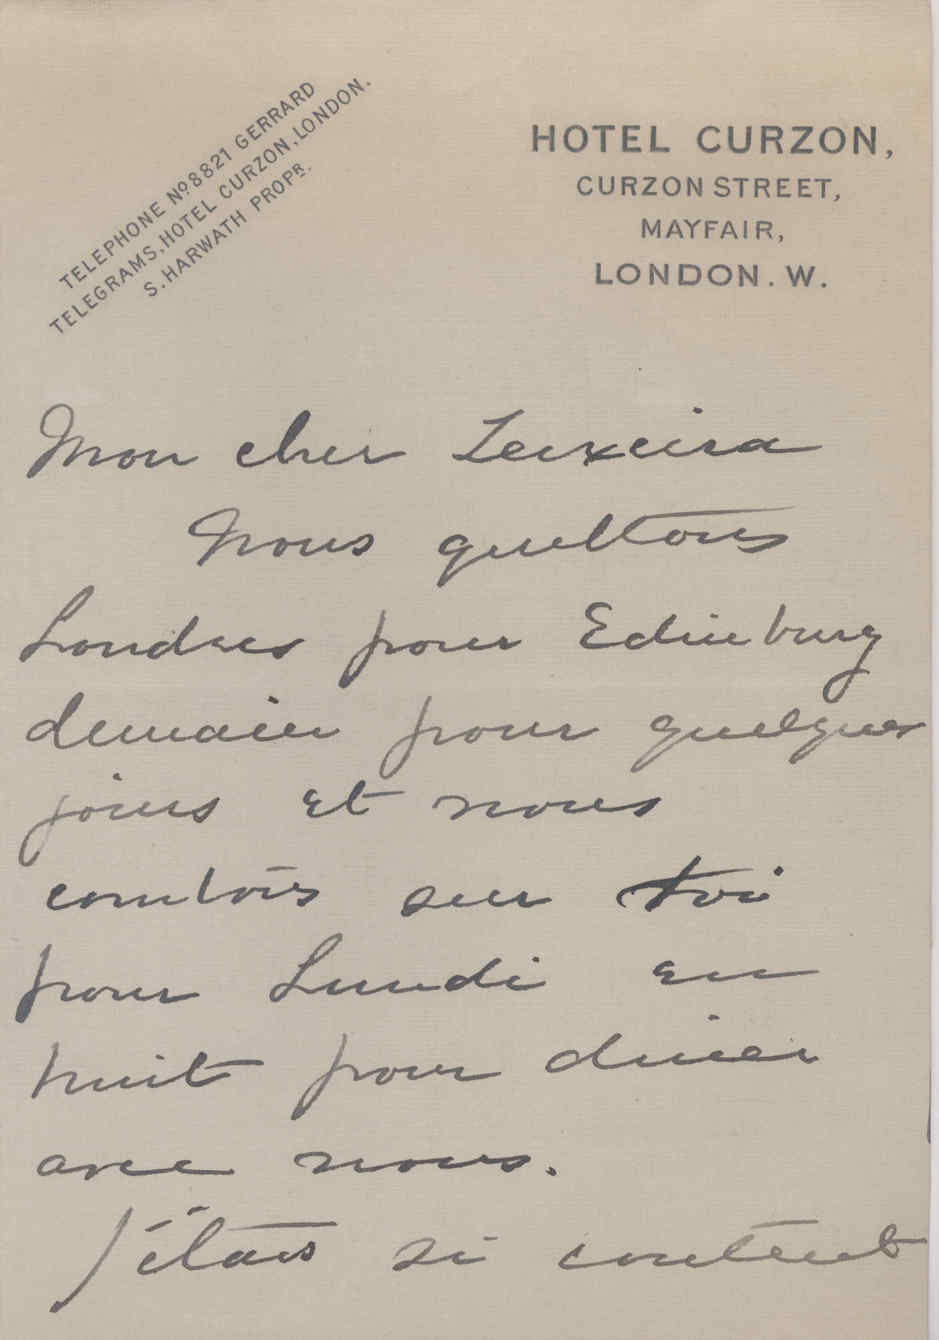 TELEPHONE Nº 8821 GERRARD
TELEGRAMS, HOTEL CURZON, LONDON.
S. HARWATH PROPR.
HOTEL CURZON,
CURZON STREET,
MAYFAIR,
LONDON. W.
Mon cher Teixeira
Nous quittons
Londres pour Edinburg
demain pour quelques
jours et nous
comtons sur toi
pour Lundi en
huit pour diner
avec nous.
J'étais si content